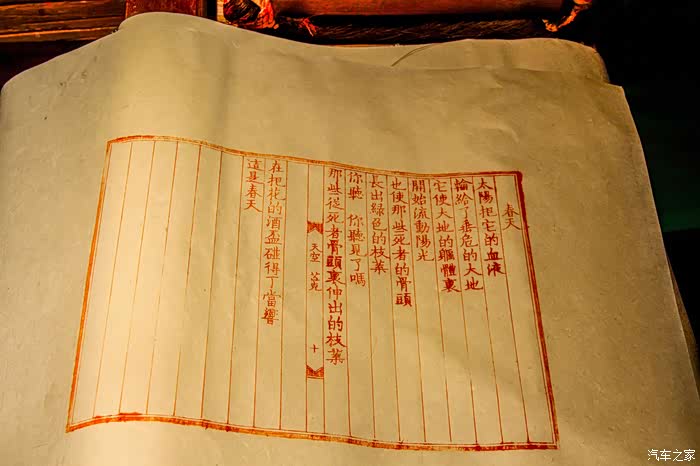 春天
太陽把它的血液
輸給了垂危的大地
它使大地的軀體裏
開始流動陽光
也使那些死者的骨頭
長出綠色的枝葉
你聽 你聽見了嗎
那些從死者骨頭裏伸出的枝葉
天空 芒克 十
在把花的酒盃碰得丁當響
這是春天
汽车之家